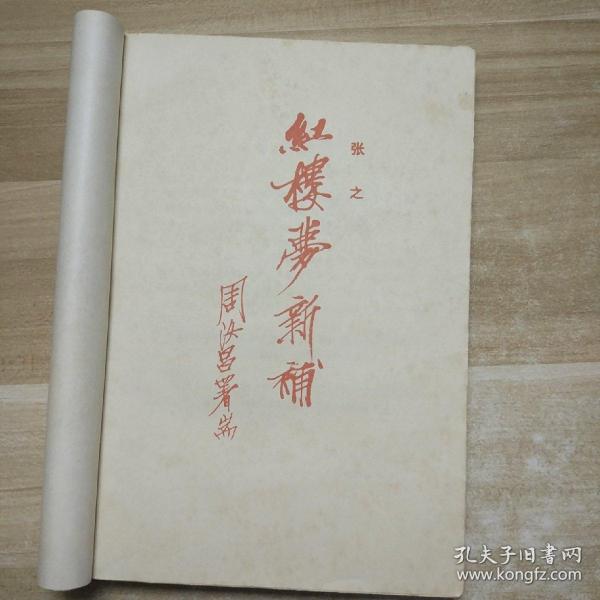 张之
紅樓夢新補
周汝昌署耑
孔夫子旧書网
www.kongfz.com